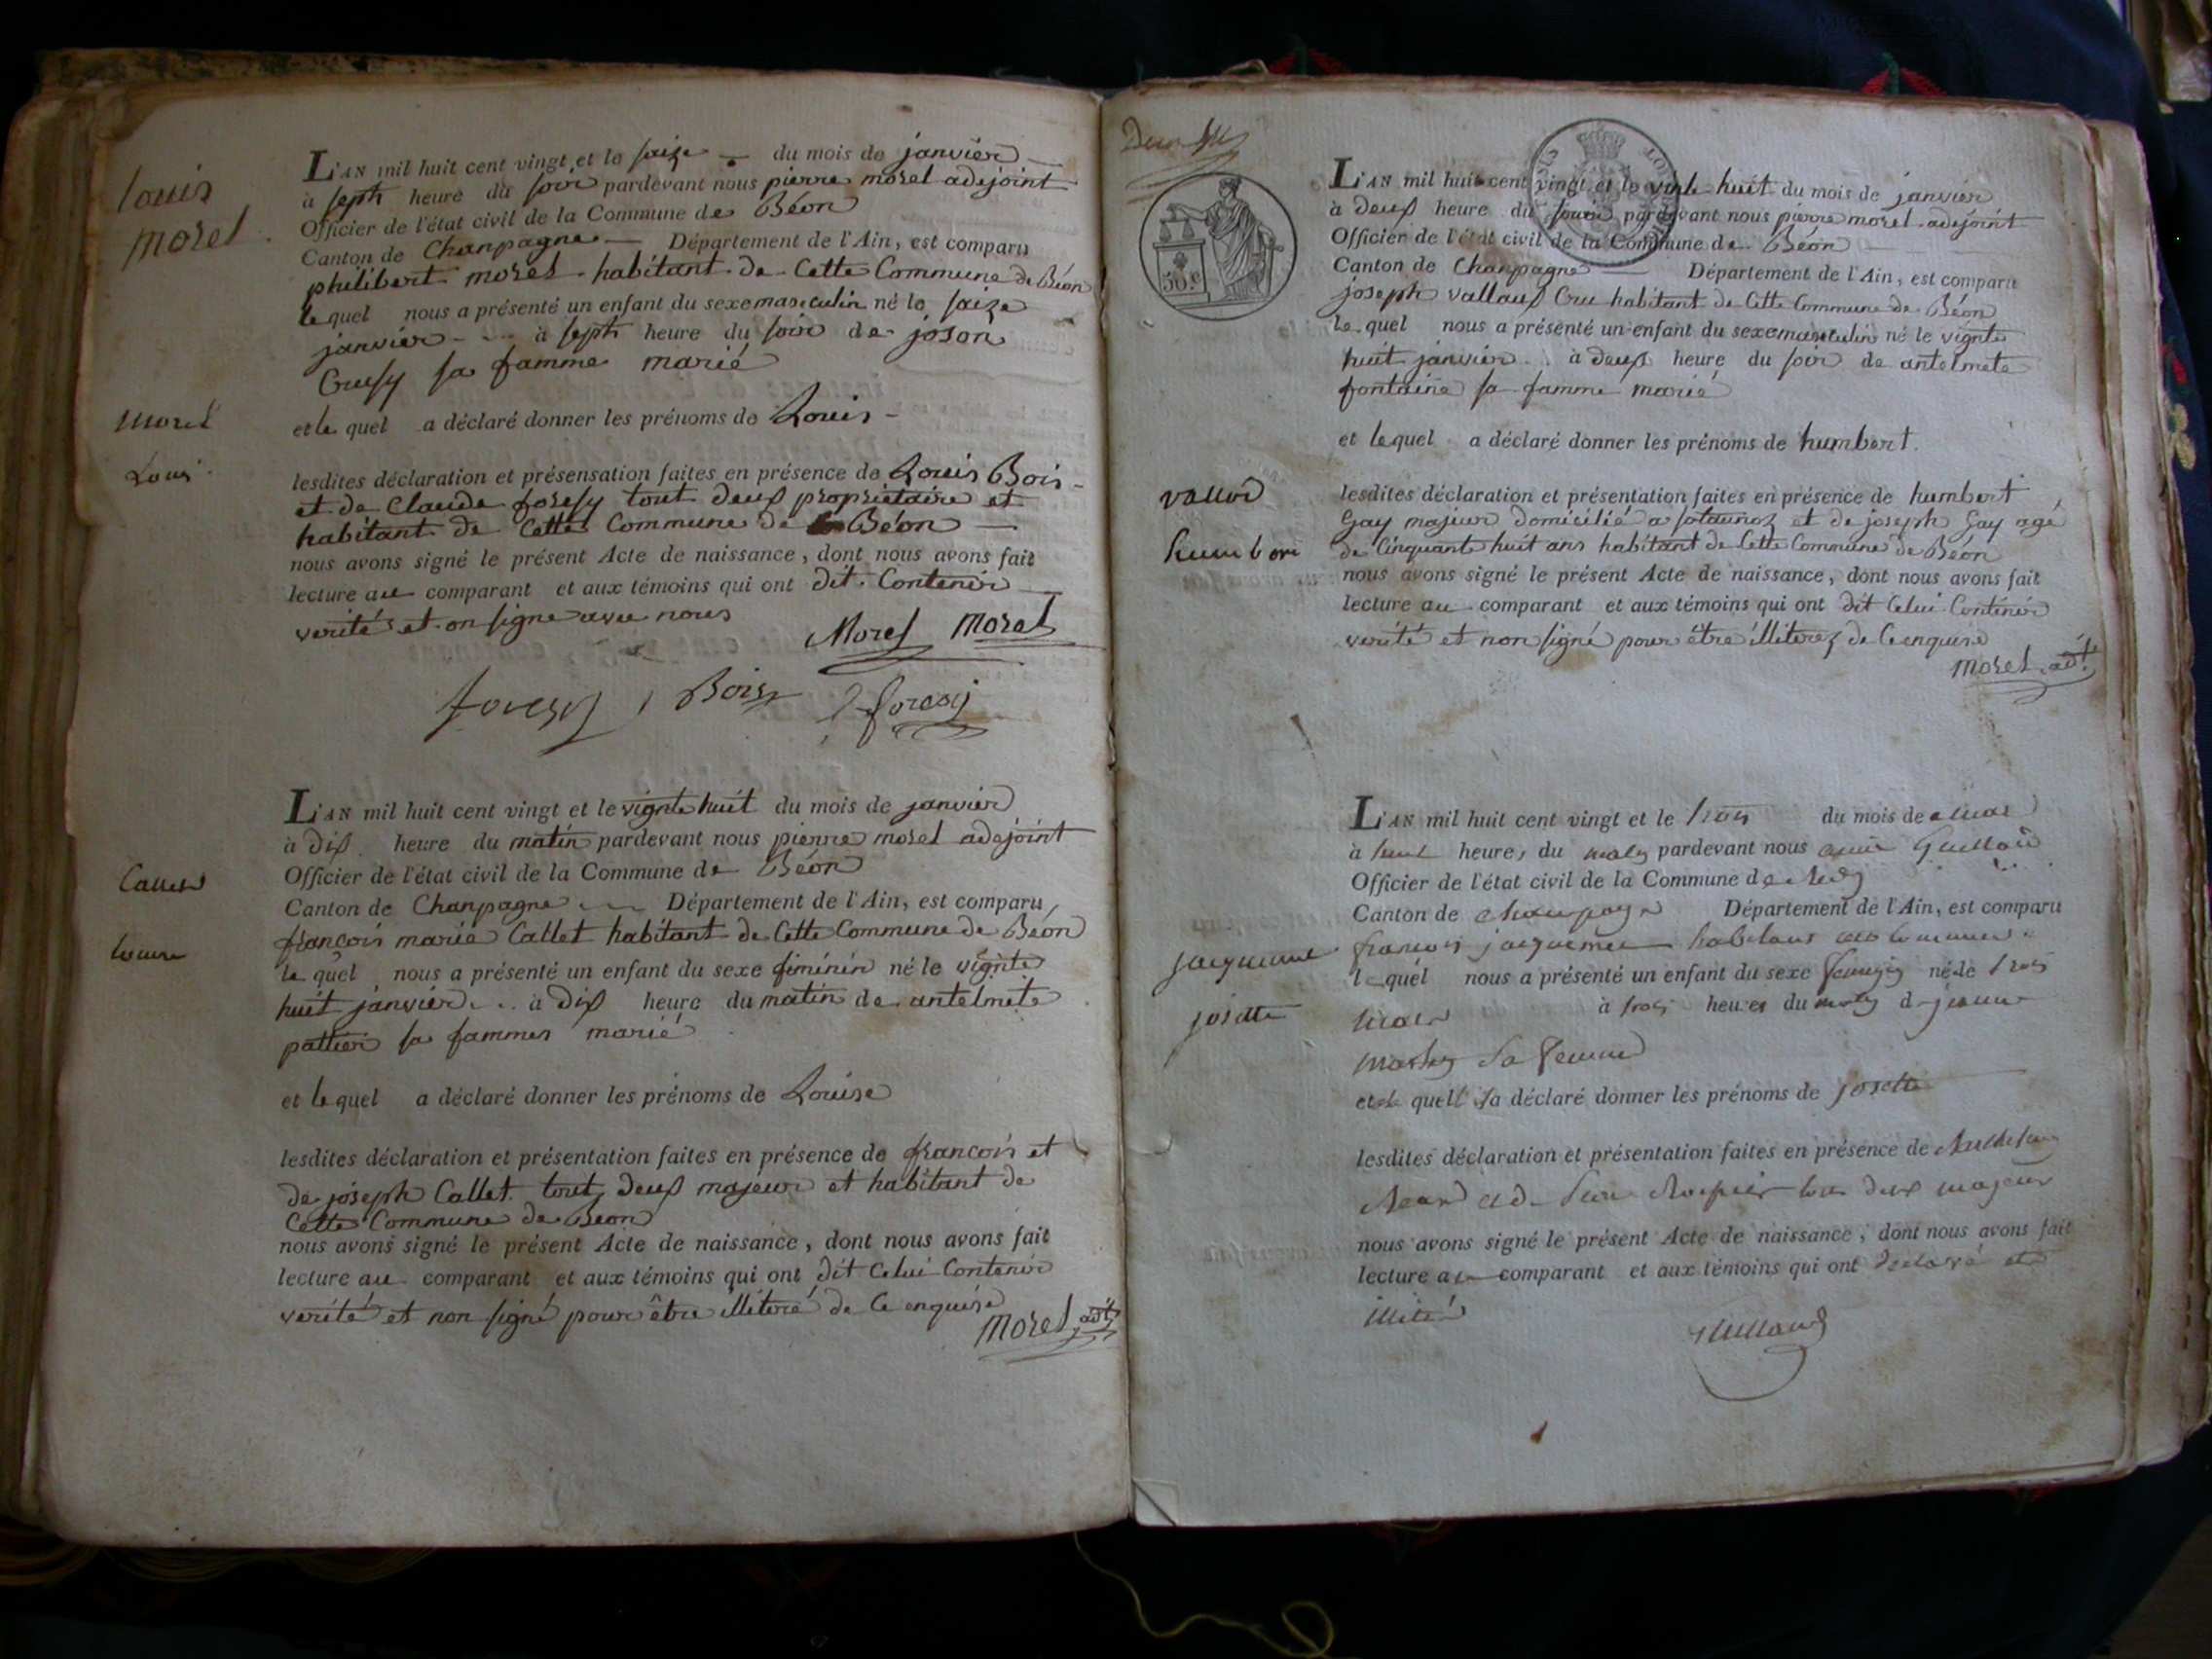 louis
morel
L'AN mil huit cent vingt et le saize du mois de janvier
à septh heure du soir pardevant nous pierre morel adejoint
Officier de l'état civil de la Commune de Béon
Canton de Chanpagne Département de l'Ain, est comparu
philibert morel habitant de Cette Commune de Béon
le quel nous a présenté un enfant du sexe masculin né le saize
janvier à septh heure du soir de joson
Crussy sa famme marié
et le quel a déclaré donner les prénoms de Louis
morel
Louis
lesdites déclaration et présensation faites en présence de Louis Bois
et de Claude foresy tout deux propriétaire et
habitant de Cette Commune de Béon
nous avons signé le présent Acte de naissance, dont nous avons fait
lecture au comparant et aux témoins qui ont dit Contenir
verité et on signe avec nous
Morel morel
Bois foresy
L'AN mil huit cent vingt et le vignte huit du mois de janvier
à dix heure du matin pardevant nous pierre morel adejoint
Officier de l'état civil de la Commune de Béon
Canton de Chanpagne Département de l'Ain, est comparu
françois marie Callet habitant de Cette Commune de Béon
le quel nous a présenté un enfant du sexe fiminin né le vignte
huit janvier à dix heure du matin de antelmete
pattier sa fammes marié
et le quel a déclaré donner les prénoms de Louise
Callet
louise
lesdites déclaration et présentation faites en présence de francois et
de joseph Callet tout deux majeur et habitant de
Cette Commune de Beon
nous avons signé le présent Acte de naissance, dont nous avons fait
lecture au comparant et aux témoins qui ont dit Celui Contenir
verité et non signé pour être illiteré de Ce enquise
morel adt
50 c
L'AN mil huit cent vingt et le vinte huit du mois de janvier
à deux heure du soir pardevant nous pierre morel adejoint
Officier de l'état civil de la Commune de Béon
Canton de Chanpagne Département de l'Ain, est comparu
joseph vallaux Cru habitant de Cette Commune de Béon
le quel nous a présenté un enfant du sexe masculin né le vignte
huit janvier à deux heure du soir de antelmete
fontaine sa famme marié
et le quel a déclaré donner les prénoms de humbert
vallod
humbert
lesdites déclaration et présentation faites en présence de humbert
Gay majeur domicilié a et de joseph Gay agé
de Cinquante huit ans habitant de Cette Commune de Béon
nous avons signé le présent Acte de naissance, dont nous avons fait
lecture au comparant et aux témoins qui ont dit Celui Contenir
verité et non signé pour être illiterez de Ce enquise
morel adt
L'AN mil huit cent vingt et le trois du mois de mars
à heures du matin pardevant nous Guilland
Officier de l'état civil de la Commune de
Canton de Champagne Département de l'Ain, est comparu
francois jacquemet habitans
le quel nous a présenté un enfant du sexe feminin né le trois
mars à trois heures du matin de jeanne
sa femme
et le quel a déclaré donner les prénoms de josette
jacquemet
josette
lesdites déclaration et présentation faites en présence de
tous deux majeur
nous avons signé le présent Acte de naissance, dont nous avons fait
lecture au comparant et aux témoins qui ont declaré etre
illiteré
Guilland